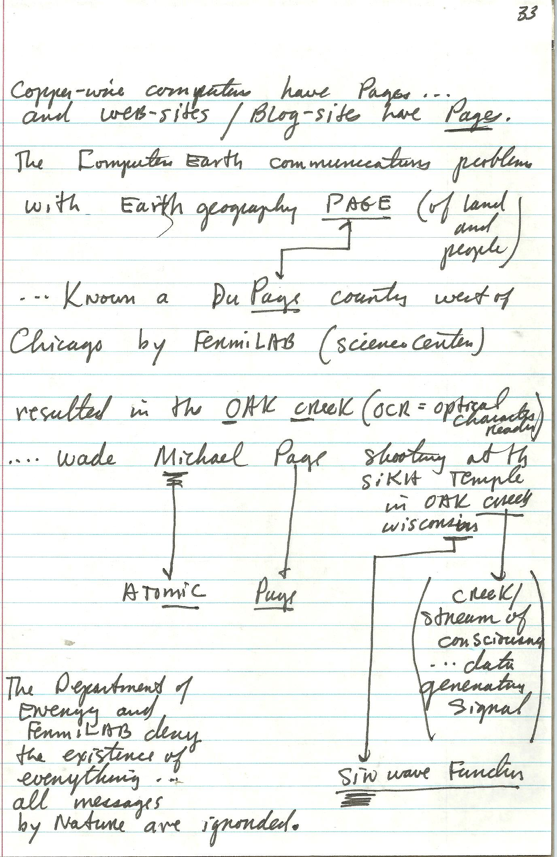 33
Copper-wire computers have Pages ...
and web-sites / Blog-sites have Pages.
The Computer Earth communications problem
with Earth geography PAGE (of land
and
people)
... Known a Du Page county west of
Chicago by FermiLAB (science center)
resulted in the OAK creek (OCR = optical
character
reader)
.... wade Michael Page shooting at the
SiKH Temple
in OAK creek
wisconsin
ATomic Page
(creek/
stream of
consciousness
... data
generation
signal)
The Department of
Energy and
FermiLAB deny
the existence of
everything ...
all messages
by Nature are ignorded.
Sin wave Function